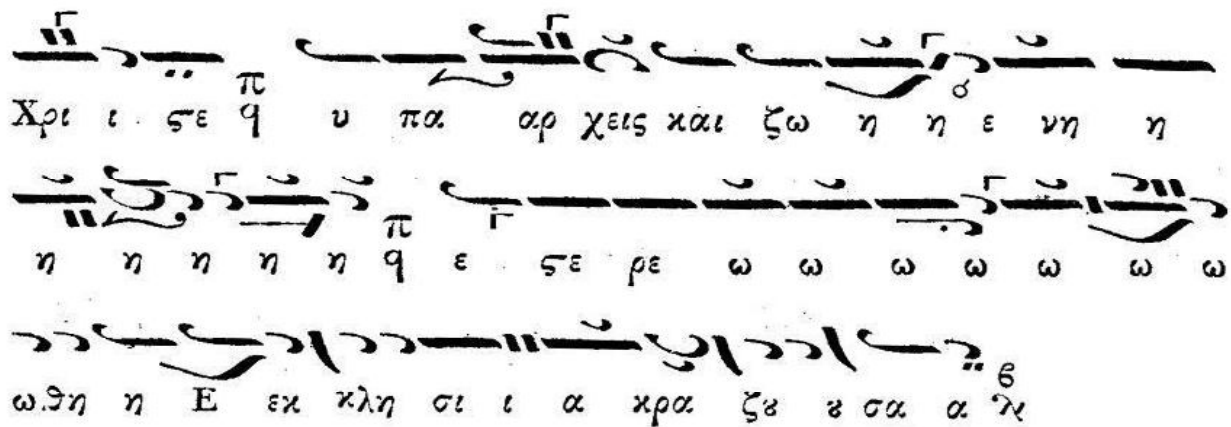 Χρι ι ϛε π q υ πα αρ χεις και ζω η η ε νη η
η η η η η π q ε ϛε ρε ω ω ω ω ω ω ω
ω.ϑη η Ε εκ κλη σι ι α κρα ζȣ ȣ σα α